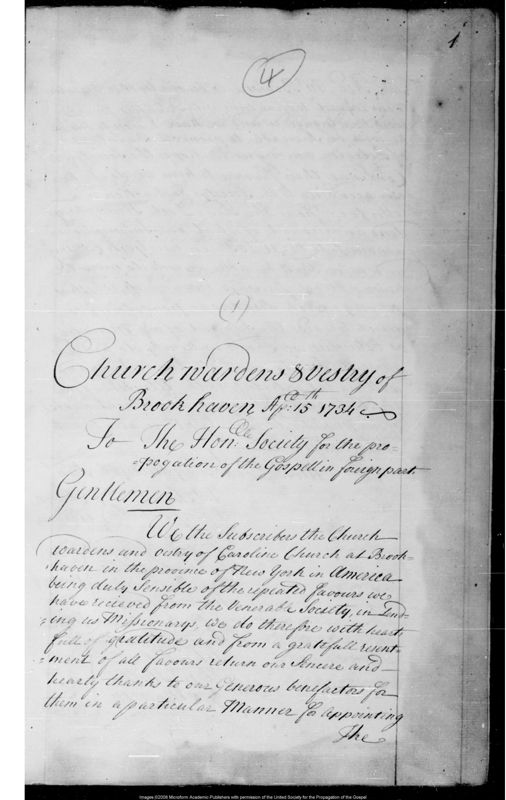 1
4
(1)
Church wardens & vestry of
Brookhaven Ap: 15th 1734
To The Honble: Society for the pro-
=pogation of the Gospell in foreign part
Gentlemen
We the Subscribers the Church
wardens and vestry of Caroline Church at Brook=
=haven in the province of New York in America
being duly Sensible of the repeated favours we
have recieved from the Venerable Society, in Send-
=ing us Missionarys, we do therefore with hearts
full of gratitude and from a gratefull resent-
=ment of all favours return our Sincere and
hearty thanks to our Generous benefactors for
them in a particular Manner for appointing
The
Images ©2008 Microform Academic Publishers with permission of the United Society for the Propagation of the Gospel